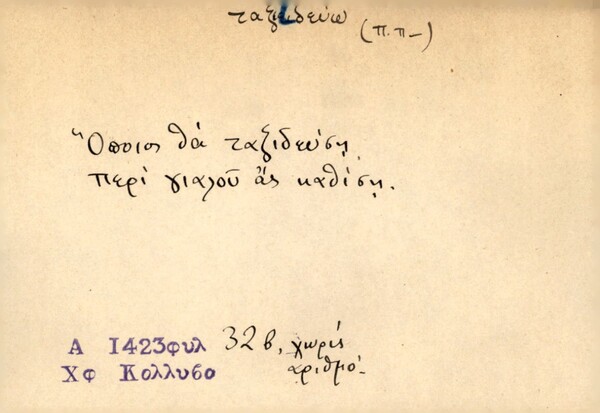 ταξιδεύω (π.π-)
Ὅποιος θά ταξιδεύσῃ
περί γιαλοῦ ἄς καθίσῃ.
Α 1423φυλ 32β, χωρίς
Χφ Κολλυβο αριθμό-